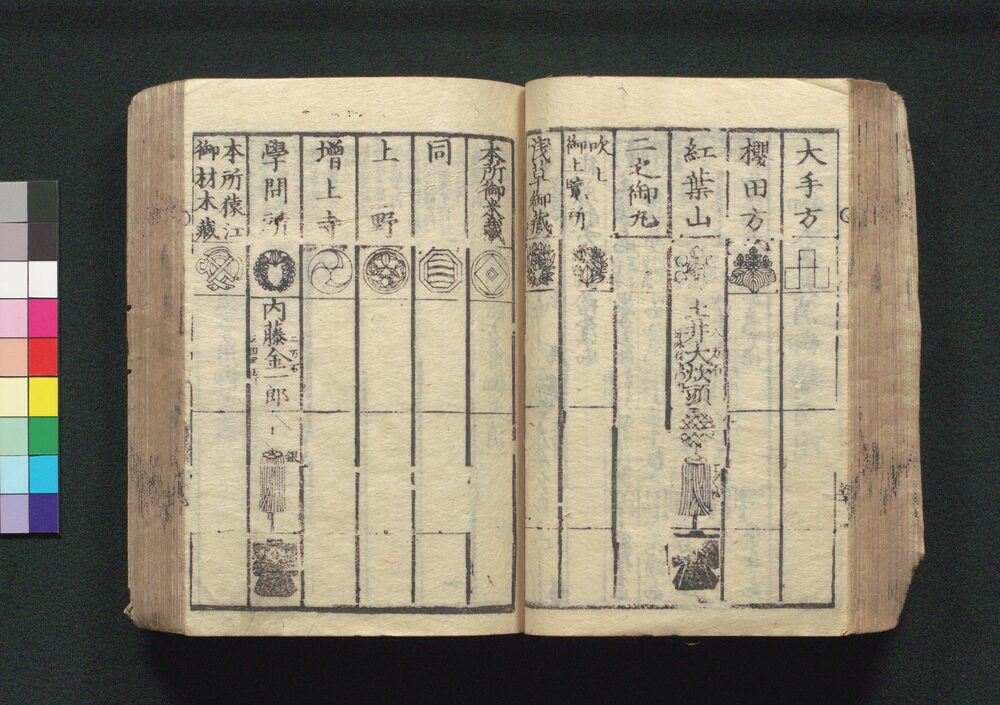 大手方
櫻田方
紅葉山
八万石
土井大炊頭
二之御丸
吹上
御上覽所
浅草御藏
本所御米藏
同
上野
増上寺
學問所
二万石
内藤金一郎
銀
本所猿江
御材木藏